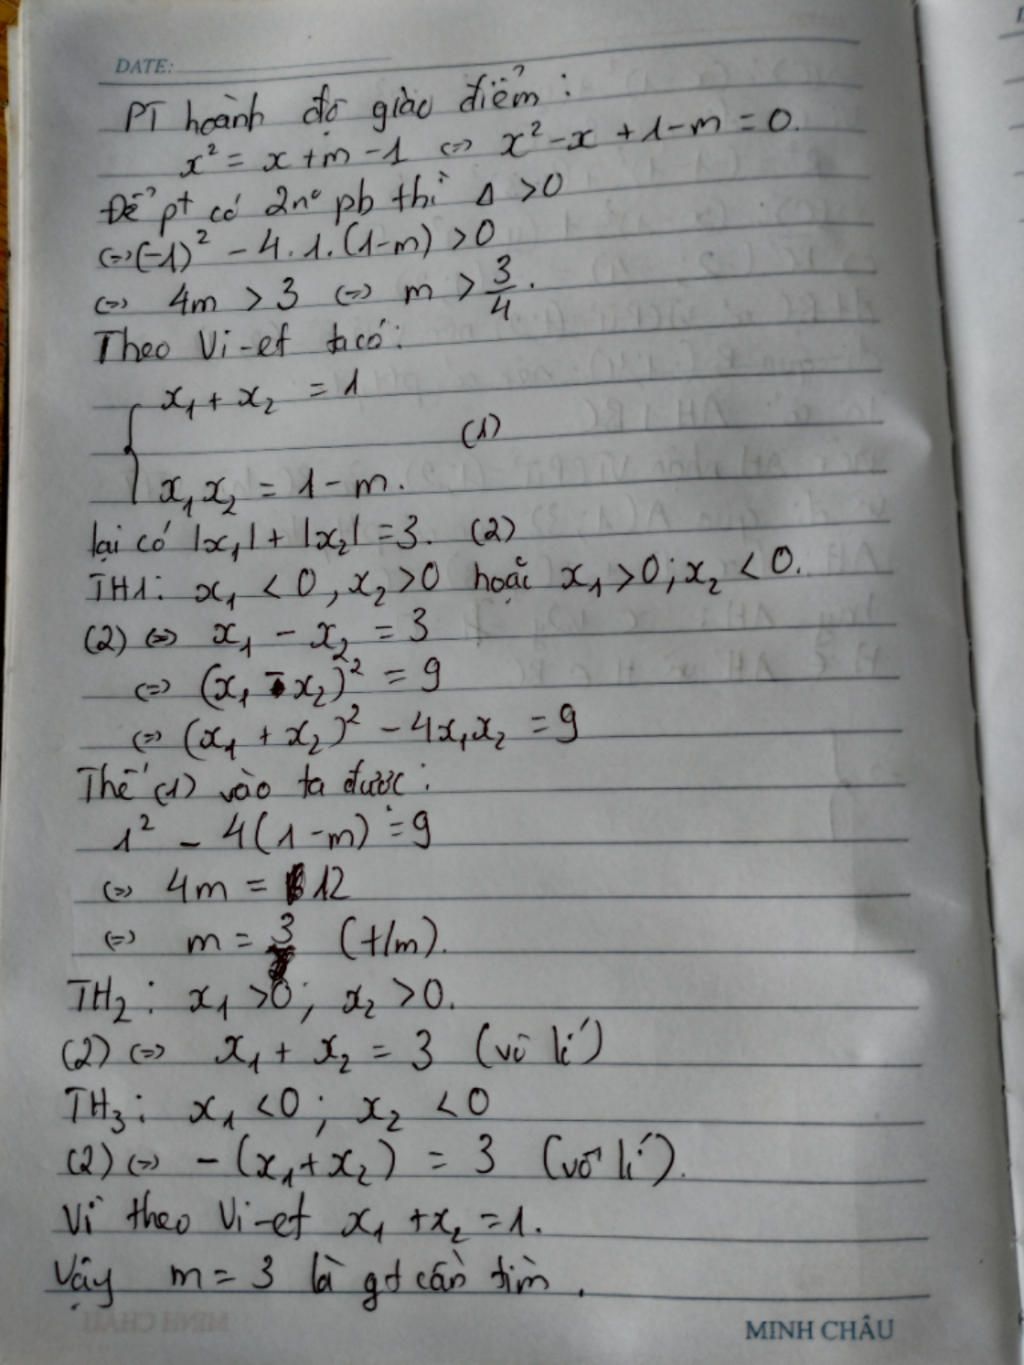 DATE:
PT hoành độ giao điểm:
x² = x + m - 1 <=> x² - x + 1 - m = 0.
Để pt có 2n⁰ pb thì Δ > 0
<=> (-1)² - 4.1.(1-m) > 0
<=> 4m > 3 <=> m > 3/4.
Theo Vi-et ta có:
{ x₁ + x₂ = 1
(1)
x₁x₂ = 1 - m.
lại có |x₁| + |x₂| = 3. (2)
TH1: x₁ < 0, x₂ > 0 hoặc x₁ > 0; x₂ < 0.
(2) <=> x₁ - x₂ = 3
<=> (x₁ - x₂)² = 9
<=> (x₁ + x₂)² - 4x₁x₂ = 9
Thế (1) vào ta được:
1² - 4(1-m) = 9
<=> 4m = 12
<=> m = 3 (t/m).
TH₂: x₁ > 0; x₂ > 0.
(2) <=> x₁ + x₂ = 3 (vô lí)
TH₃: x₁ < 0; x₂ < 0
(2) <=> -(x₁ + x₂) = 3 (vô lí).
Vì theo Vi-et x₁ + x₂ = 1.
Vậy m = 3 là gt cần tìm.
MINH CHÂU